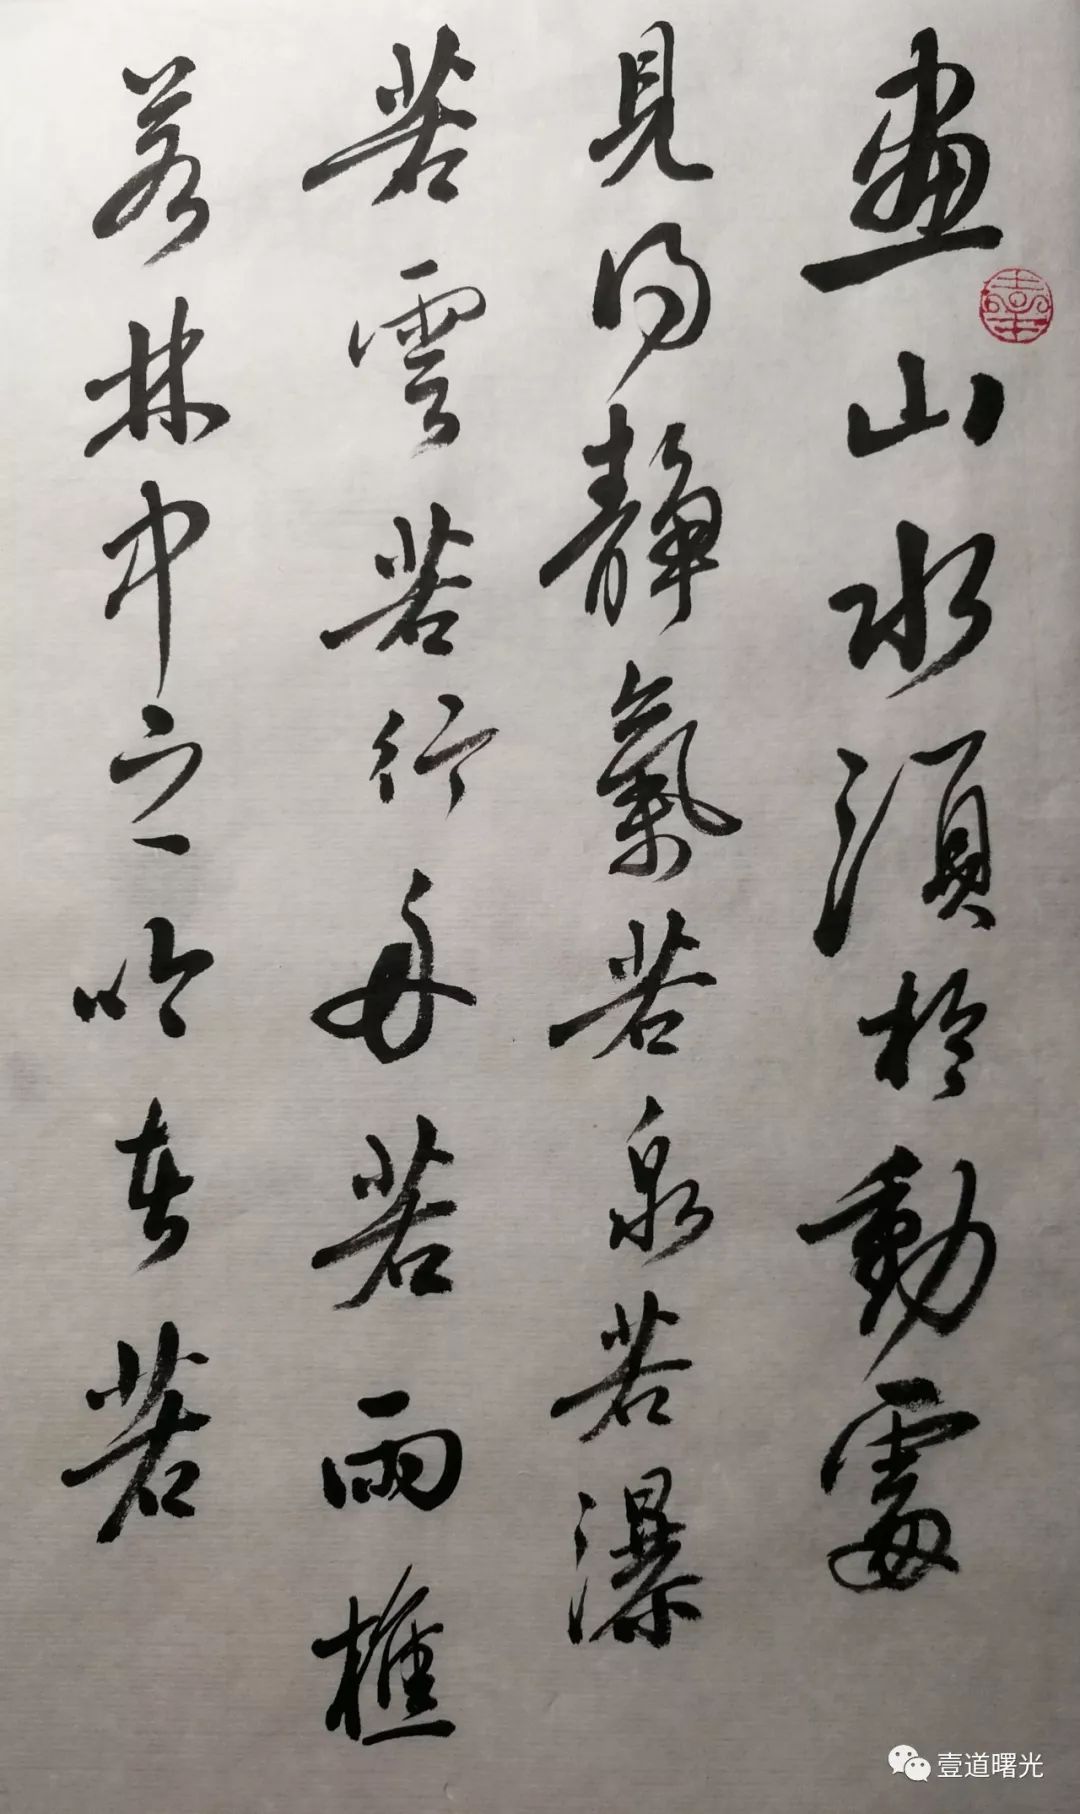 畫山水須於動處
見得靜氣若泉若瀑
若雲若行舟若雨樵
若林中之吟者若
壹道曙光